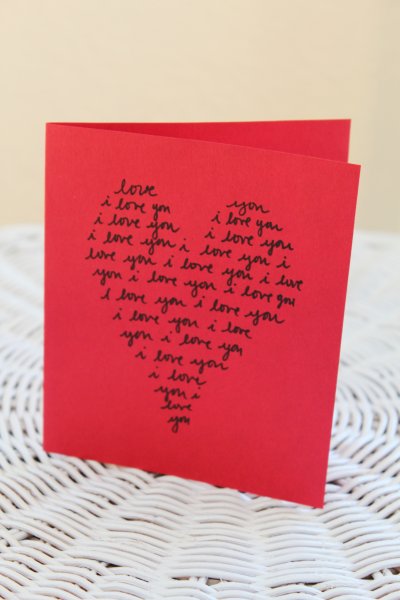 love you
i love you i love you
i love you i love you
i love you i love you i
love you i love you i love
you i love you i love you
I love you i love you
i love you i love
you i love you
i love you
i love
you i
love
you